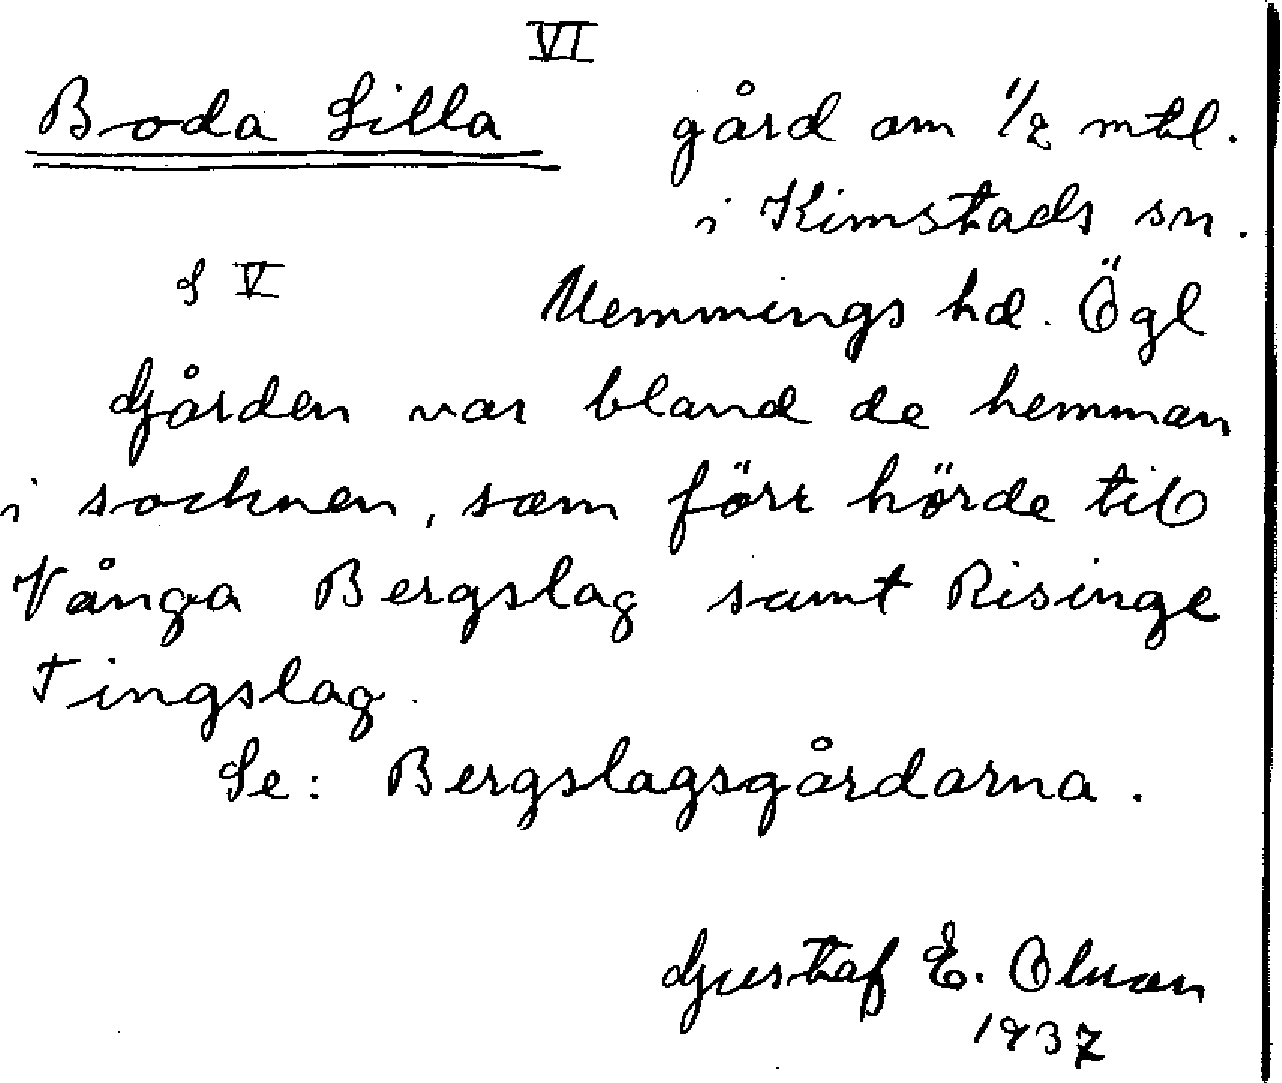 VI
Boda Lilla gård om 1/2 mtl.
i Kimstads sn.
S V Memmings hd. Ögl
Gården var bland de hemman
i socknen, som förr hörde till
Vånga Bergslag samt Risinge
Tingslag.
Se: Bergslagsgårdarna.
Gustaf E. Olsson
1937